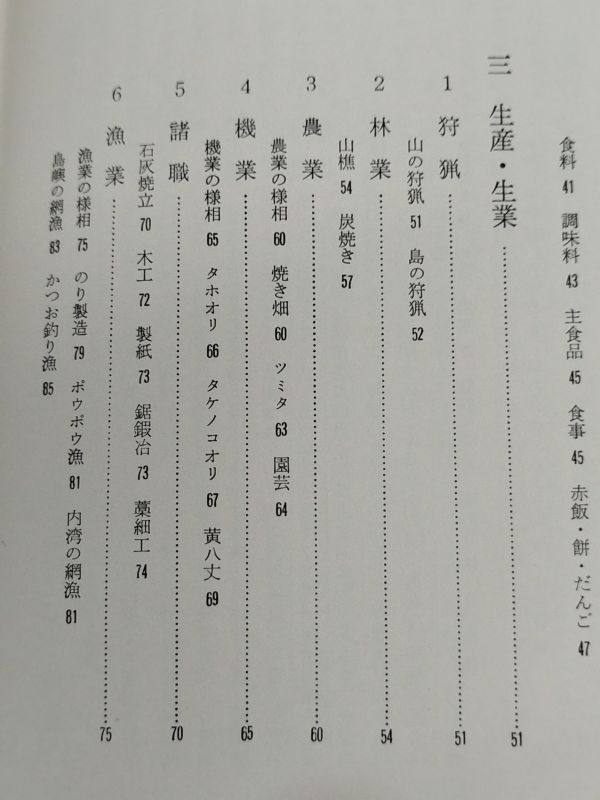 食料 41 調味料 43 主食品 45 食事 45 赤飯・餅・だんご 47
三 生産・生業 51
1 狩猟 51
山の狩猟 51 島の狩猟 52
2 林業 54
山樵 54 炭焼き 57
3 農業 60
農業の様相 60 焼き畑 60 ツミタ 63 園芸 64
4 機業 65
機業の様相 65 タホオリ 66 タケノコオリ 67 黄八丈 69
5 諸職 70
石灰焼立 70 木工 72 製紙 73 鋸鍛冶 73 藁細工 74
6 漁業 75
漁業の様相 75 のり製造 79 ボウボウ漁 81 内湾の網漁 81
島嶼の網漁 83 かつお釣り漁 85